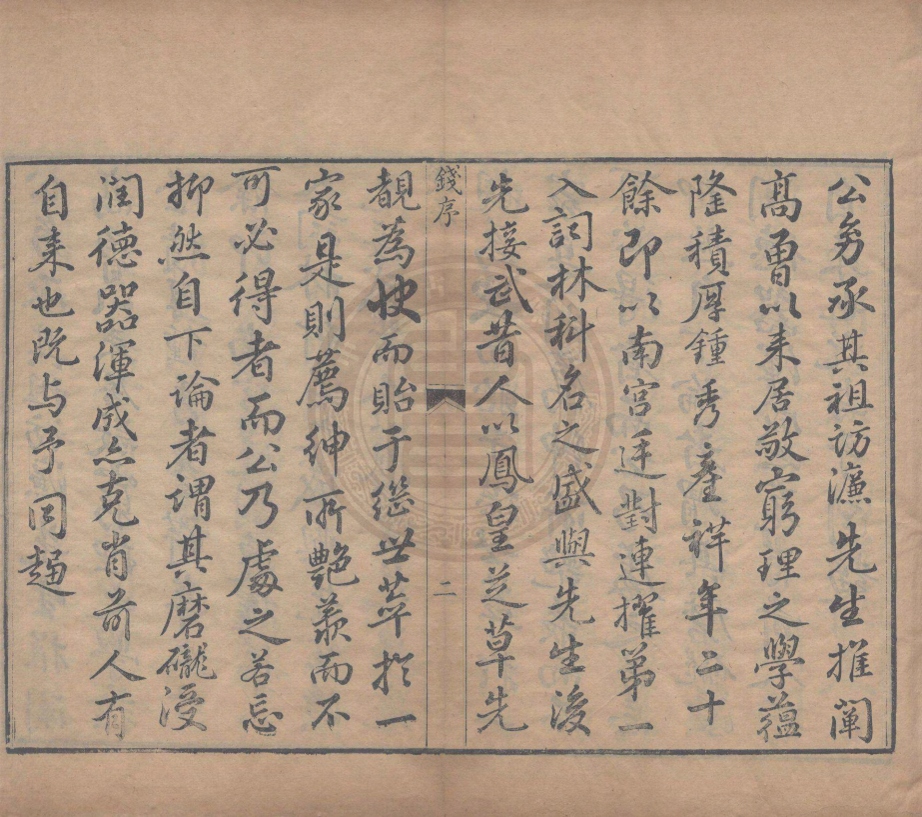 公身承其祖訪濂先生推闡
高曾以来居敬窮理之學蘊
隆積厚鍾秀產祥年二十
餘即以南宮廷對連擢第一
入詞林科名之盛與先生後
先接武昔人以鳳皇芝草先
錢序
二
覩為快而貽于繼世萃於一
家是則薦紳所艷羨而不
可必得者而公乃處之若忘
抑然自下論者謂其磨礲浸
潤德器渾成克肖前人有
自来也既与予同趨